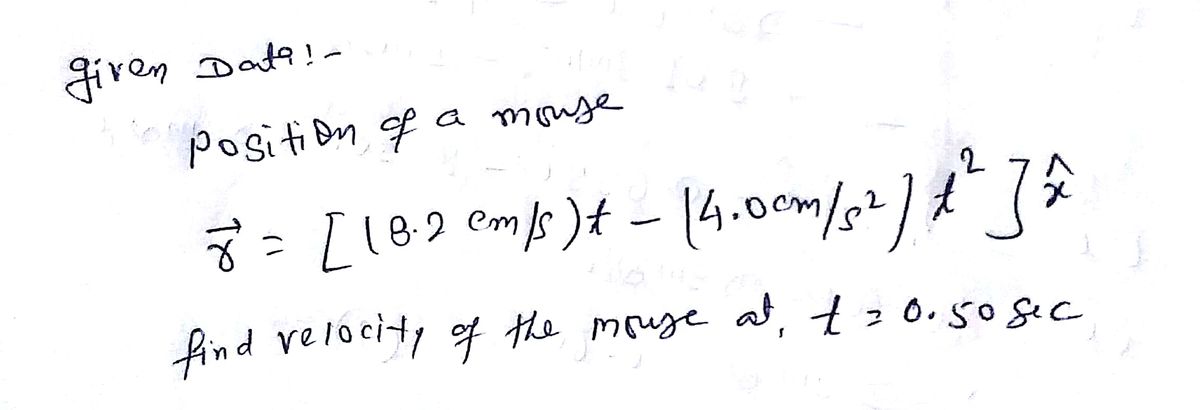 given Data:-
position of a mouse
r⃗ = [(8.2 cm/s)t - (4.0cm/s²)t²]x̂
find velocity of the mouse at, t = 0.50 sec